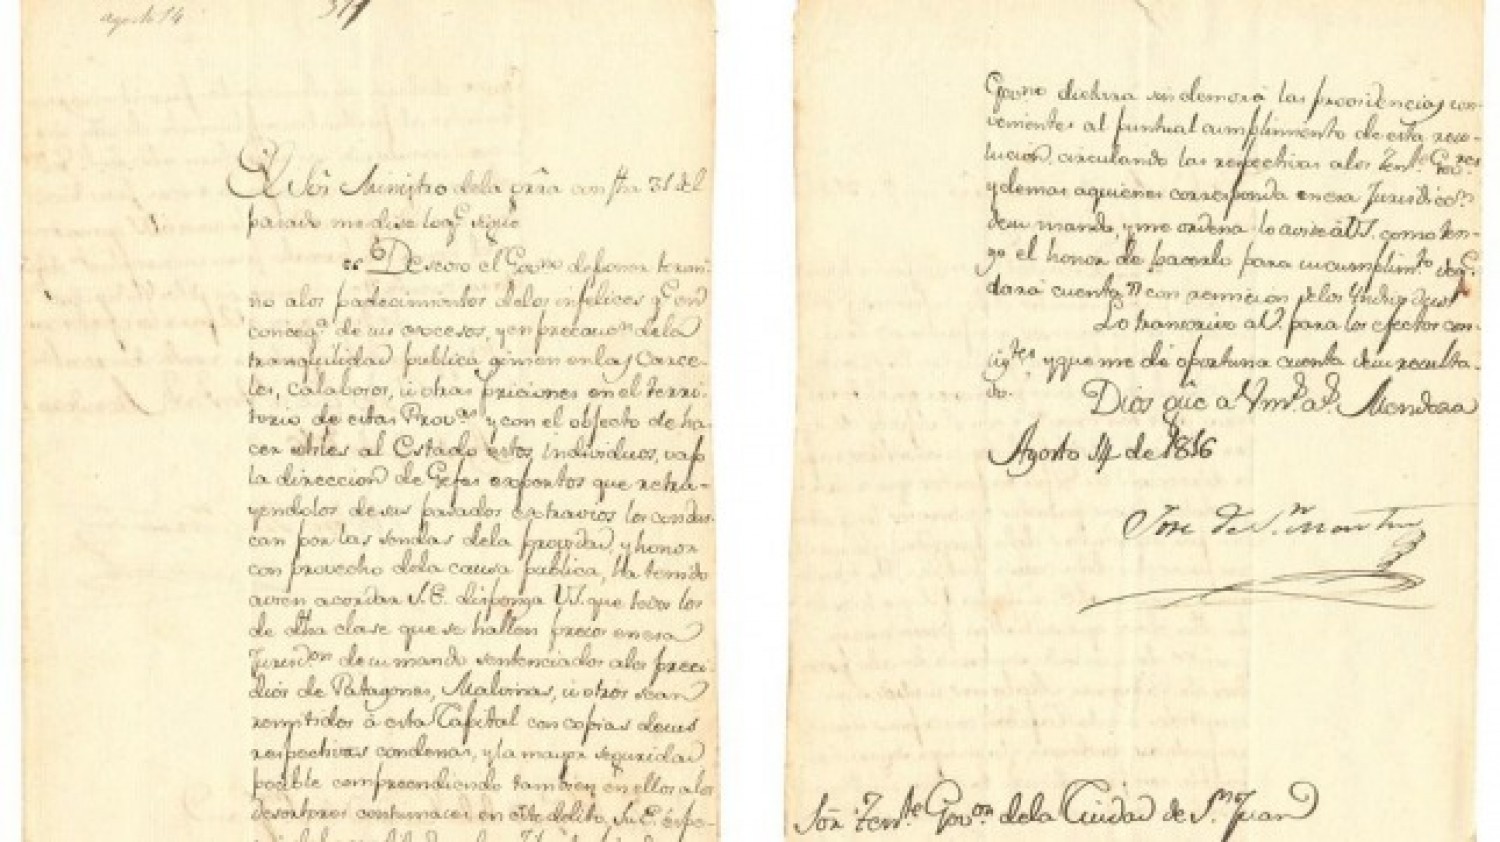 agosto 14
El Sor. Ministro dela grra con fha 31 del
pasado me dise loqe. sigue
Deseoso el Govno. deponer termi-
no alos padecimientos delos infelices qe. en
conseqa. de sus excesos, y en precaucion dela
tranquilidad publica gimen en las Carce-
les, calabosos, ù otras priciones en el terri-
torio de estas Provas. y con el objecto de ha-
cer utiles al Estado estos individuos, vajo
la direccion de Gefes expertos que retra-
yendolos de sus pasados extravios los condus-
can por las sendas dela providad, y honor
con provecho dela causa publica, ha tenido
avien acordar S.E. disponga VS. que todos los
de dha clase que se hallen presos en esa
Jurisdon. de su mando sentenciados alos preci-
dios de Patagones, Malvinas, ù otros sean
remitidos à esta Capital con copias de sus
respectivas condenas, y la mayor seguridad
posible compreendiendo tambien en ellos alos
desertores contumaces en este delito. Su E. espe-
Govno. dictara sin demora las providencias con-
venientes al puntual cumplimiento de esta reso-
lucion, circulando las respectivas alos Tente. Govres.
y demas aquienes corresponda en esa Jurisdicon.
de su mando, y me ordena lo avise à VS. como ten-
go el honor de hacerlo para su cumplimto. de qe.
dará cuenta con remicion de los Yndividuos
Lo transcrivo a V. para los efectos con-
sigtes. y que me dé oportuna cuenta de su resulta-
do.
Dios gûe a Vms. as. Mendoza
Agosto 14 de 1816
Jose de Sn. Martin
Sôr Tente. Govor. dela Ciudad de Sn. Juan